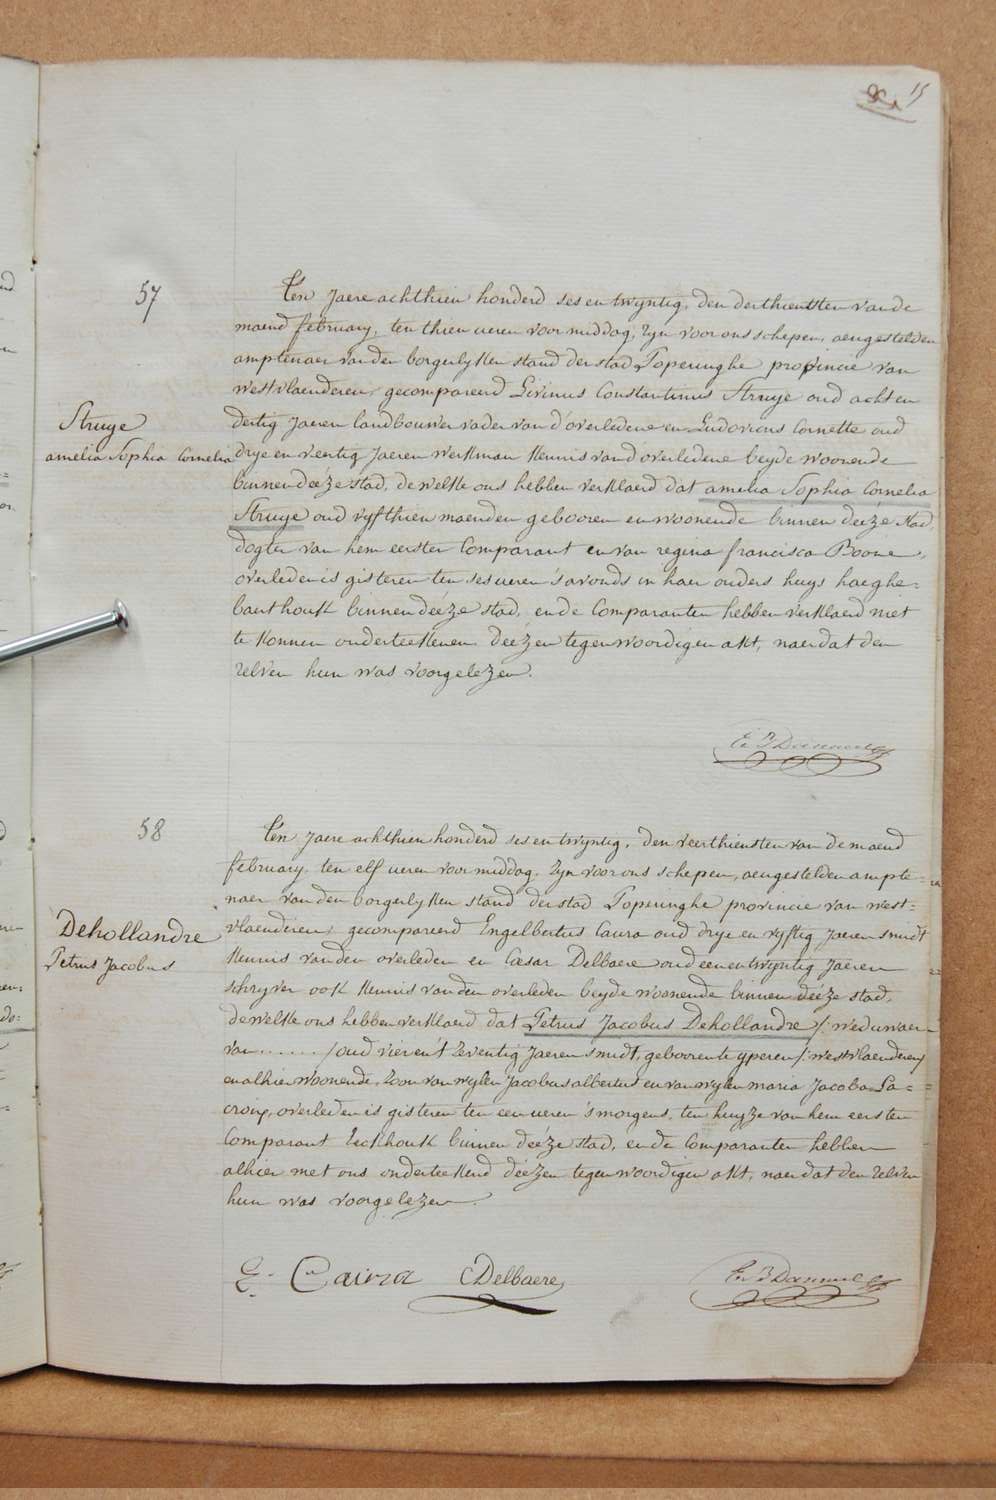 15
57
Ten Jaere achthien honderd ses en twyntig, den derthientsten van de
maend february, ten thien ueren voor middag, Zyn voor ons schepen, aengestelden
amptenaer van den borgerlyken stand der stad Poperinghe provincie van
westvlaenderen, gecompareerd Livinus Constantinus Struye oud acht en
Struye
amelia Sophia Cornelia
dertig Jaeren landbouwer vader van d'overledene en Ludovicus Cornette oud
drye en veertig Jaeren Werkman Kennis van d'overledene beyde woonende
binnen deéze stad, de welke ons hebben verklaerd dat amelia Sophia Cornelia
Struye oud vyfthien maenden gebooren en woonende binnen deéze stad,
dogter van hem eersten Comparant en van regina francisca Boone,
overleden is gisteren ten ses ueren 's avonds in haer ouders huys haeghe=
bauthoek binnen deéze stad, en de Comparanten hebben verklaerd niet
te konnen onderteekenen deézen tegenwoordigen akt, naer dat den
zelven hun was voorgelezen.
58
Ten Jaere achthien honderd ses en twyntig, den veerthiensten van de maend
february, ten elf ueren voor middag, Zyn voor ons schepen, aengestelden ampte=
naer van den borgerlyken stand der stad Poperinghe provincie van west=
vlaenderen, gecompareerd Engelbertus Caura oud drye en vyftig Jaeren smidt
Dehollandre
Petrus Jacobus
Kennis van den overleden en Cæsar Delbaere oud een en twyntig Jaeren
schryver ook Kennis van den overleden beyde woonende binnen deéze stad,
de welke ons hebben verklaerd dat Petrus Jacobus Dehollandre /: weduwaer
van ...... / oud vier en't Zeventig Jaeren smidt, gebooren te yperen /: westvlaenderen/
en alhier woonende, Zoon van wylen Jacobus albertus en van wylen maria Jacoba La=
croix, overleden is gisteren ten een ueren 's morgens, ten huyze van hem eersten
Comparant Eekhoek binnen deéze stad, en de Comparanten hebben
alhier met ons onderteekend deézen tegenwoordigen akt, naer dat den zelven
hun was voorgelezen
E. Caura CDelbaere